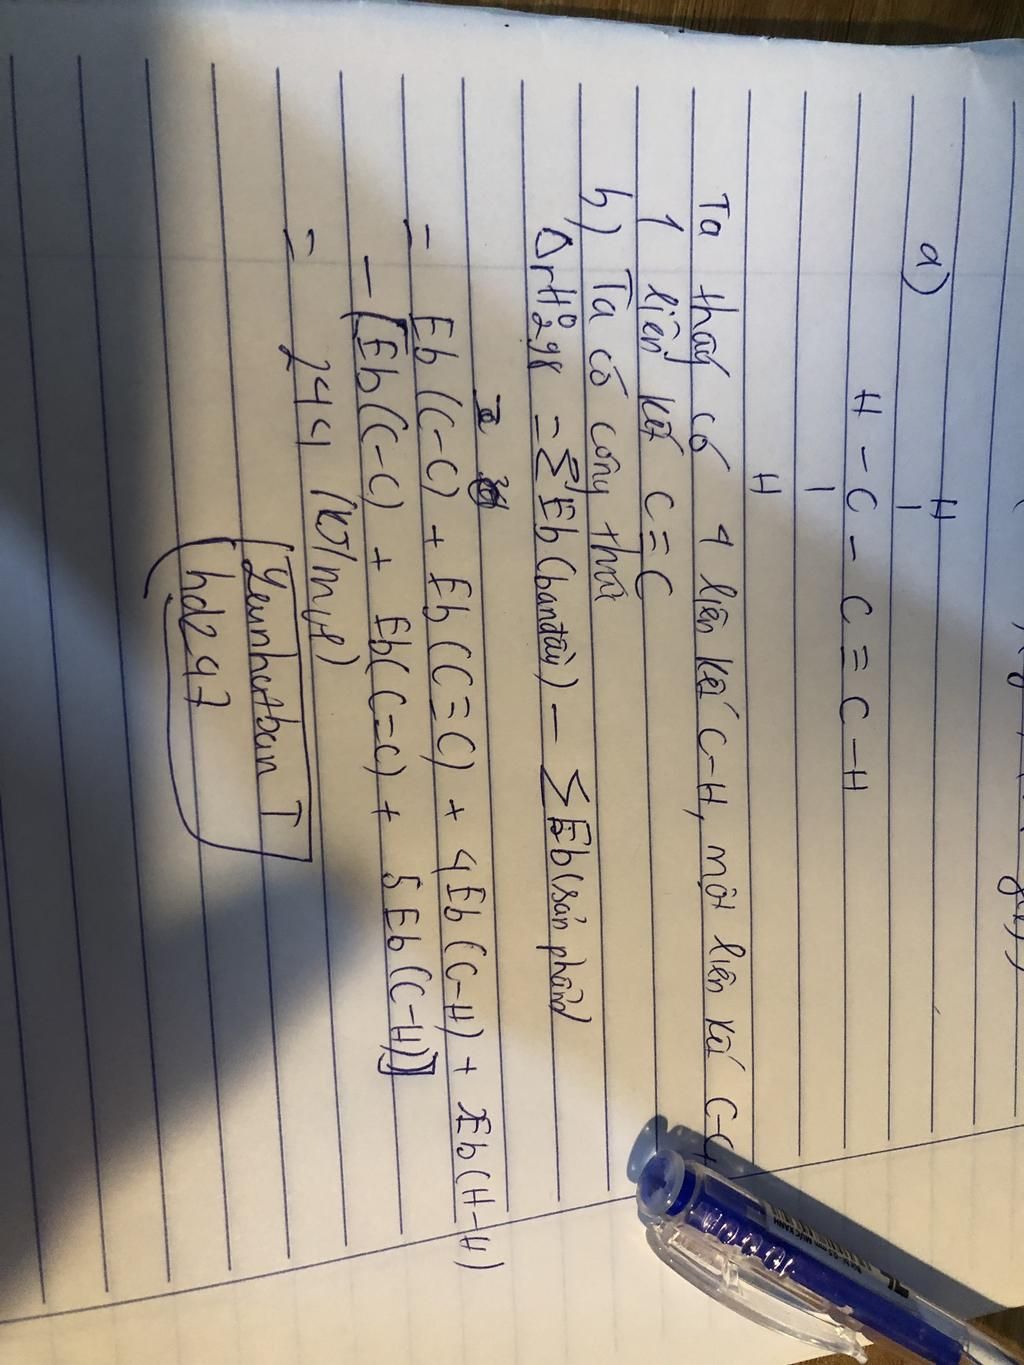 a)
H
|
H - C - C ≡ C - H
|
H
Ta thấy có 4 liên kết C-H, một liên kết C-C,
1 liên kết C≡C
b) Ta có công thức
ΔrH°298 = ΣEb(ban đầu) - ΣEb(sản phẩm)
= Eb(C-C) + Eb(C≡C) + 4Eb(C-H) + Eb(H-H)
- [Eb(C-C) + Eb(C=C) + 5Eb(C-H)]
= 244 (kJ/mol)
YeunhatbanT
hd247